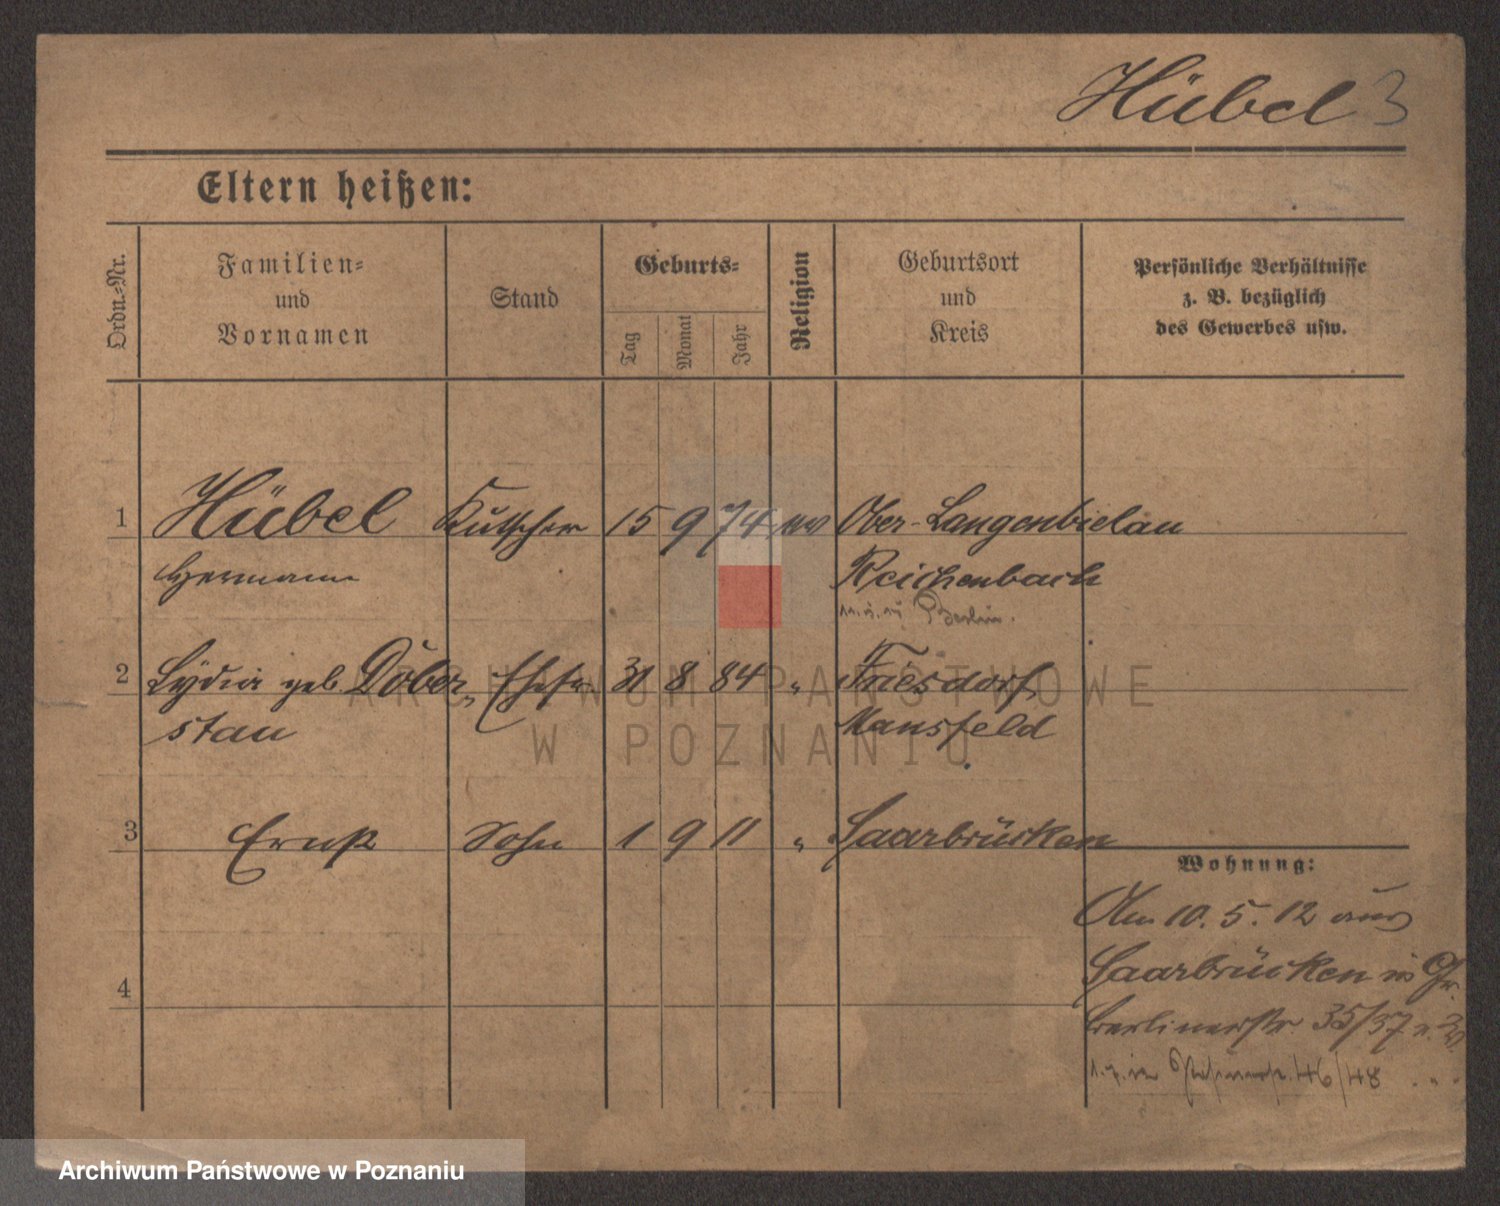 Hübel 3
Eltern heißen:
Ordn.-Nr.
Familien-
und
Vornamen
Stand
Geburts-
Tag
Monat
Jahr
Religion
Geburtsort
und
Kreis
Persönliche Verhältnisse
z. B. bezüglich
des Gewerbes usw.
1 Hübel Kutscher 15 9 74 Ober-Langenbielau
Hermann Reichenbach
Berlin.
2 Lydia geb. Döber- Ehefr. 31 8 84 " Friesdorf,
stau Mansfeld
3 Ernst Sohn 1 9 11 " Saarbrücken
Wohnung:
Am 10. 5. 12 aus
Saarbrücken in
4
Berlinerstr. 35/37
46/48
ARCHIWUM PAŃSTWOWE
W POZNANIU
Archiwum Państwowe w Poznaniu